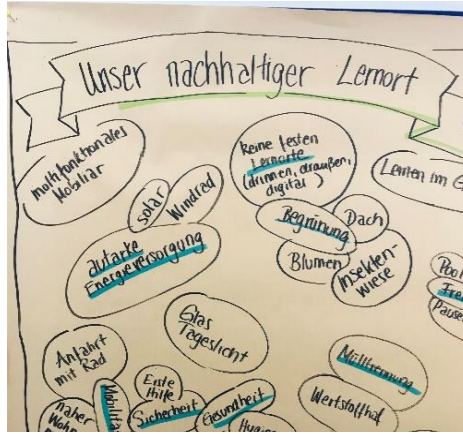 Unser nachhaltiger Lernort
multifunktionales
Mobiliar
solar
Windrad
autarke
Energieversorgung
keine festen
Lernorte
(drinnen, draußen,
digital)
Begrünung
Dach
Blumen
Insekten-
wiese
Lernen im
Glas
Tageslicht
Anfahrt
mit Rad
naher
Erste
Hilfe
Sicherheit
Gesundheit
Mülltrennung
Wertstoffhof